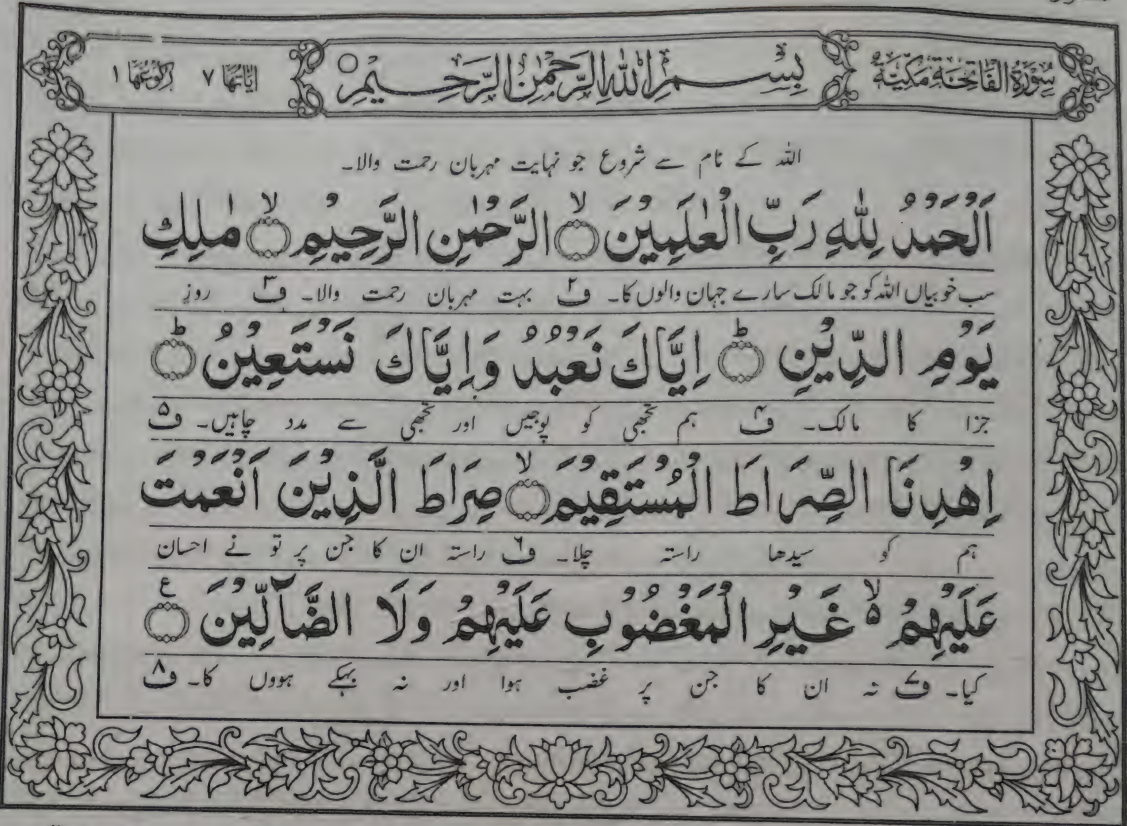 سُوْرَةُ الْفَاتِحَةِ مَكِّيَّةٌ
بِسْمِ اللّٰهِ الرَّحْمٰنِ الرَّحِیْمِ ○
اٰیَاتُهَا ۷ رُكُوْعُهَا ۱
اللہ کے نام سے شروع جو نہایت مہربان رحمت والا۔
اَلْحَمْدُ لِلّٰهِ رَبِّ الْعٰلَمِیْنَ ۙ الرَّحْمٰنِ الرَّحِیْمِ ۙ مٰلِكِ
سب خوبیاں اللہ کو جو مالک سارے جہان والوں کا۔ ف۲ بہت مہربان رحمت والا۔ ف۳ روزِ
یَوْمِ الدِّیْنِ ؕ اِیَّاكَ نَعْبُدُ وَاِیَّاكَ نَسْتَعِیْنُ ؕ
جزا کا مالک۔ ف۴ ہم تجھی کو پوجیں اور تجھی سے مدد چاہیں۔ ف۵
اِهْدِنَا الصِّرَاطَ الْمُسْتَقِیْمَ ۙ صِرَاطَ الَّذِیْنَ اَنْعَمْتَ
ہم کو سیدھا راستہ چلا۔ ف۶ راستہ ان کا جن پر تو نے احسان
عَلَیْهِمْ ۙ۬ۥ غَیْرِ الْمَغْضُوْبِ عَلَیْهِمْ وَلَا الضَّآلِّیْنَ ع
کیا۔ ف۷ نہ ان کا جن پر غضب ہوا اور نہ بہکے ہووں کا۔ ف۸